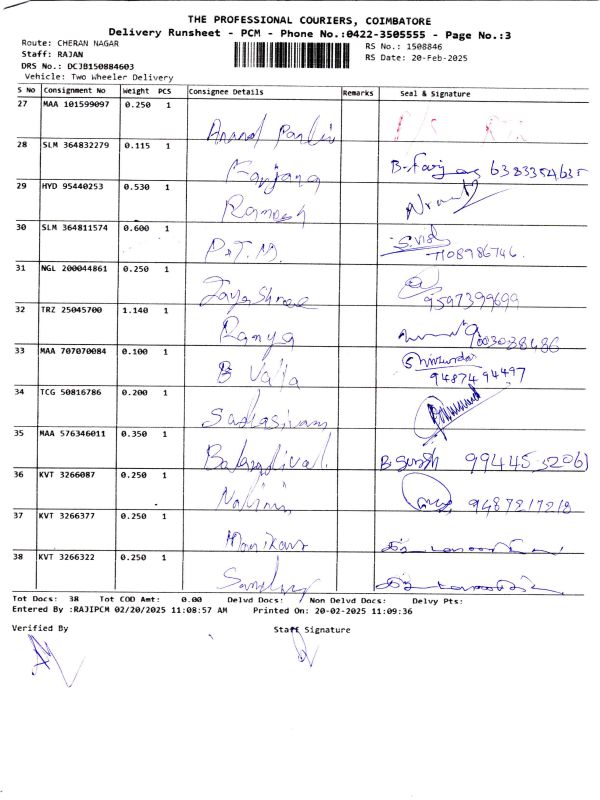 THE PROFESSIONAL COURIERS, COIMBATORE
Delivery Runsheet - PCM - Phone No.:0422-3505555 - Page No.:3
Route: CHERAN NAGAR
RS No.: 1508846
Staff: RAJAN
RS Date: 20-Feb-2025
DRS No.: DCJB1508B4603
Vehicle: Two Wheeler Delivery
S No Consignment No Weight PCS Consignee Details Remarks Seal & Signature
27 MAA 101599097 0.250 1
28 SLM 364832279 0.115 1 Farjana
29 HYD 95440253 0.530 1 Ramesh
30 SLM 364811574 0.600 1 P.T.M. 7108986746
31 NGL 200044861 0.250 1 Jaya Shree 9597399699
32 TRZ 25045700 1.140 1 Ramya 9003038486
33 MAA 707070084 0.100 1 B Valla 9487494497
34 TCG 50816786 0.200 1 Sadasivam
35 MAA 576346011 0.350 1
36 KVT 3266087 0.250 1 Nalini 9487217218
37 KVT 3266377 0.250 1
38 KVT 3266322 0.250 1
Tot Docs: 38 Tot COD Amt: 0.00 Delvd Docs: Non Delvd Docs: Delvy Pts:
Entered By :RAJIPCM 02/20/2025 11:08:57 AM Printed On: 20-02-2025 11:09:36
Verified By Staff Signature